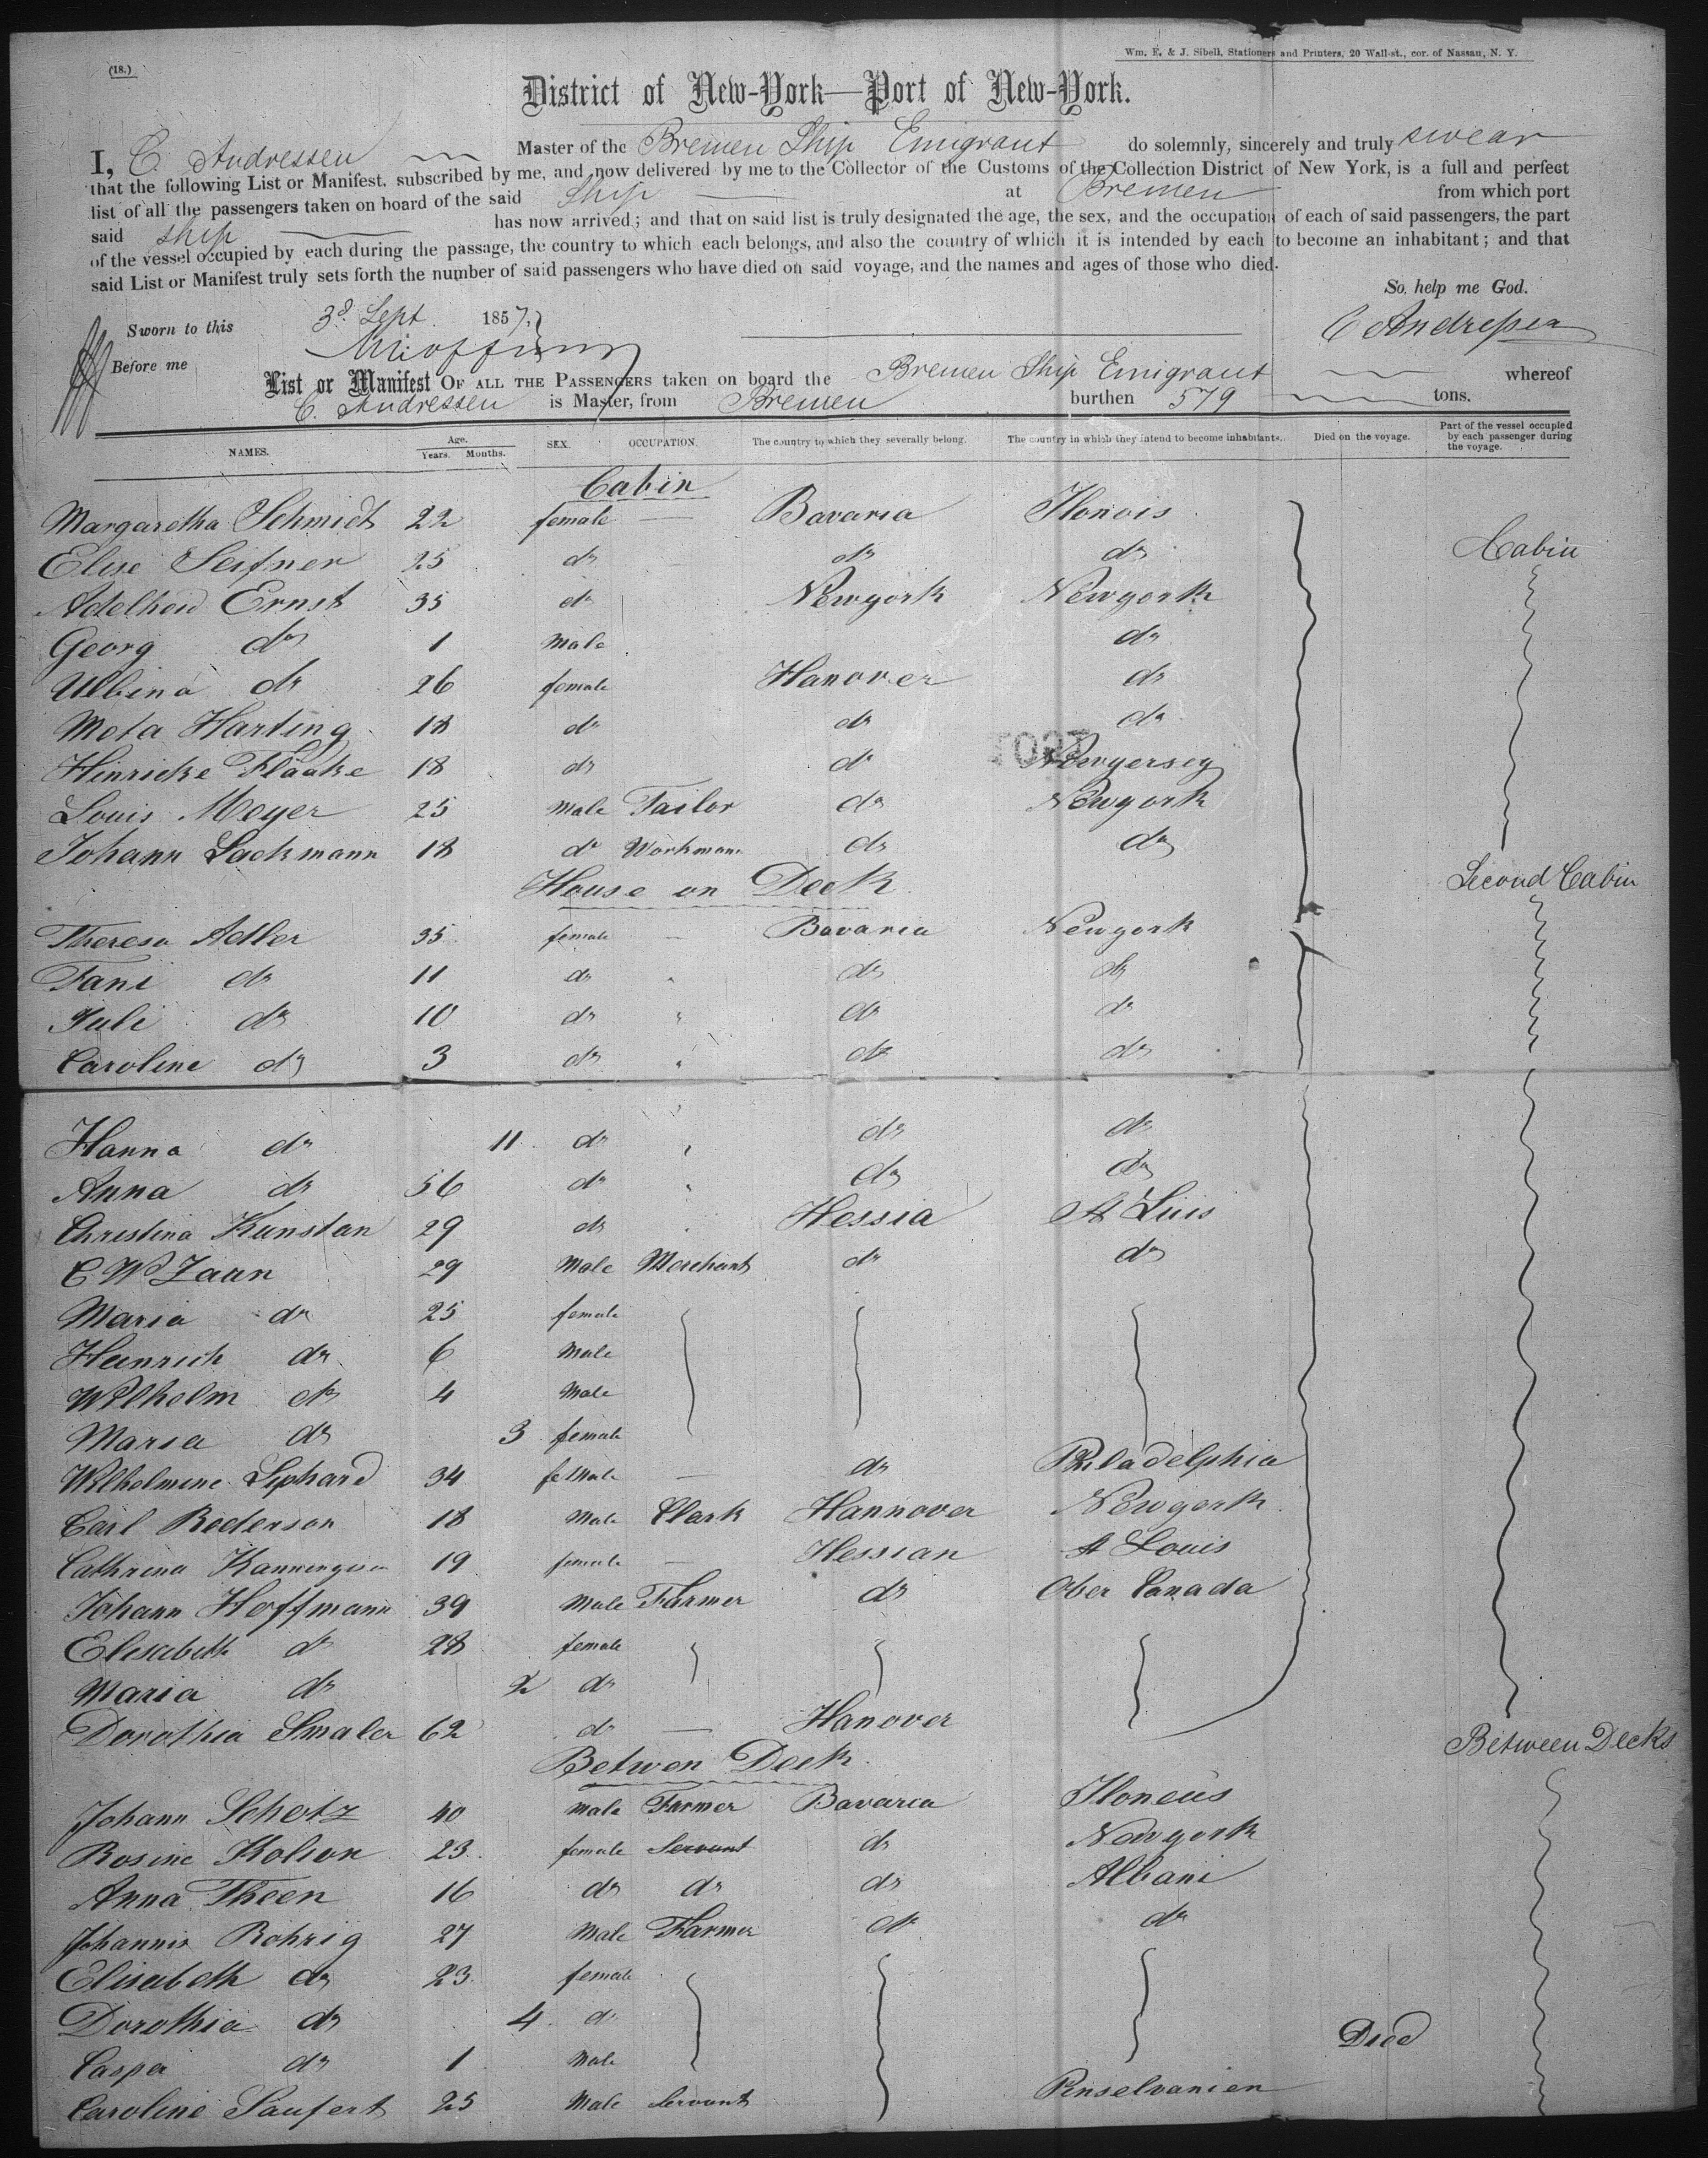 (18.)
Wm. E. & J. Sibell, Stationers and Printers, 20 Wall-st., cor. of Nassau, N. Y.
District of New-York—Port of New-York.
I, C. Andressen Master of the Bremen Ship Emigrant do solemnly, sincerely and truly swear
that the following List or Manifest, subscribed by me, and now delivered by me to the Collector of the Customs of the Collection District of New York, is a full and perfect
list of all the passengers taken on board of the said Ship at Bremen from which port
said ship has now arrived; and that on said list is truly designated the age, the sex, and the occupation of each of said passengers, the part
of the vessel occupied by each during the passage, the country to which each belongs, and also the country of which it is intended by each to become an inhabitant; and that
said List or Manifest truly sets forth the number of said passengers who have died on said voyage, and the names and ages of those who died.
So help me God.
Sworn to this 3d Sept. 1857,
C Andressen
Before me
List or Manifest OF ALL THE PASSENGERS taken on board the Bremen Ship Emigrant whereof
C. Andressen is Master, from Bremen burthen 579 tons.
NAMES. Age. Years. Months. SEX. OCCUPATION. The country to which they severally belong. The country in which they intend to become inhabitants. Died on the voyage. Part of the vessel occupied by each passenger during the voyage.
Cabin
Margaretha Schmidt 22 female — Bavaria Ilonois
Elise Seifner 25 do do do Cabin
Adelheid Ernst 35 do Newyork Newyork
Georg do 1 Male do
Ulbina do 26 female Hanover do
Meta Harting 18 do do do
Hinricke Flaake 18 do do Newyersey
Louis Meyer 25 Male Tailor do Newyork
Johann Lackmann 18 do Workmann do do
House on Deck Second Cabin
Theresa Adler 35 female — Bavaria Newyork
Fani do 11 do " do do
Juli do 10 do " do do
Caroline do 3 do " do do
Hanna do 11 do " do do
Anna do 56 do " do do
Christina Kunstan 29 do Hessia St Luis
C. W. Zaun 29 Male Merchant do do
Maria do 25 female
Heinrich do 6 Male
Wilhelm do 4 Male
Maria do 3 female
Wilhelmine Liphard 34 female — do Philadelphia
Carl Rederson 18 Male Clark Hannover Newyork
Cathrina 19 female — Hessian St Louis
Johann Hoffmann 39 Male Farmer do Ober Canada
Elisabeth do 28 female
Maria do 2 do
Dorothia Smaler 62 do — Hanover
Betwen Deck Between Decks
Johann Schotz 40 Male Farmer Bavaria Iloneus
Rosine Kolson 23 female Servant do Newyork
Anna Theen 16 do do do Albani
Johannis Rohrig 27 Male Farmer do do
Elisabeth do 23 female
Dorothia do 4 do Died
Casper do 1 Male
Caroline Saufert 25 Male Servant Penselvanien